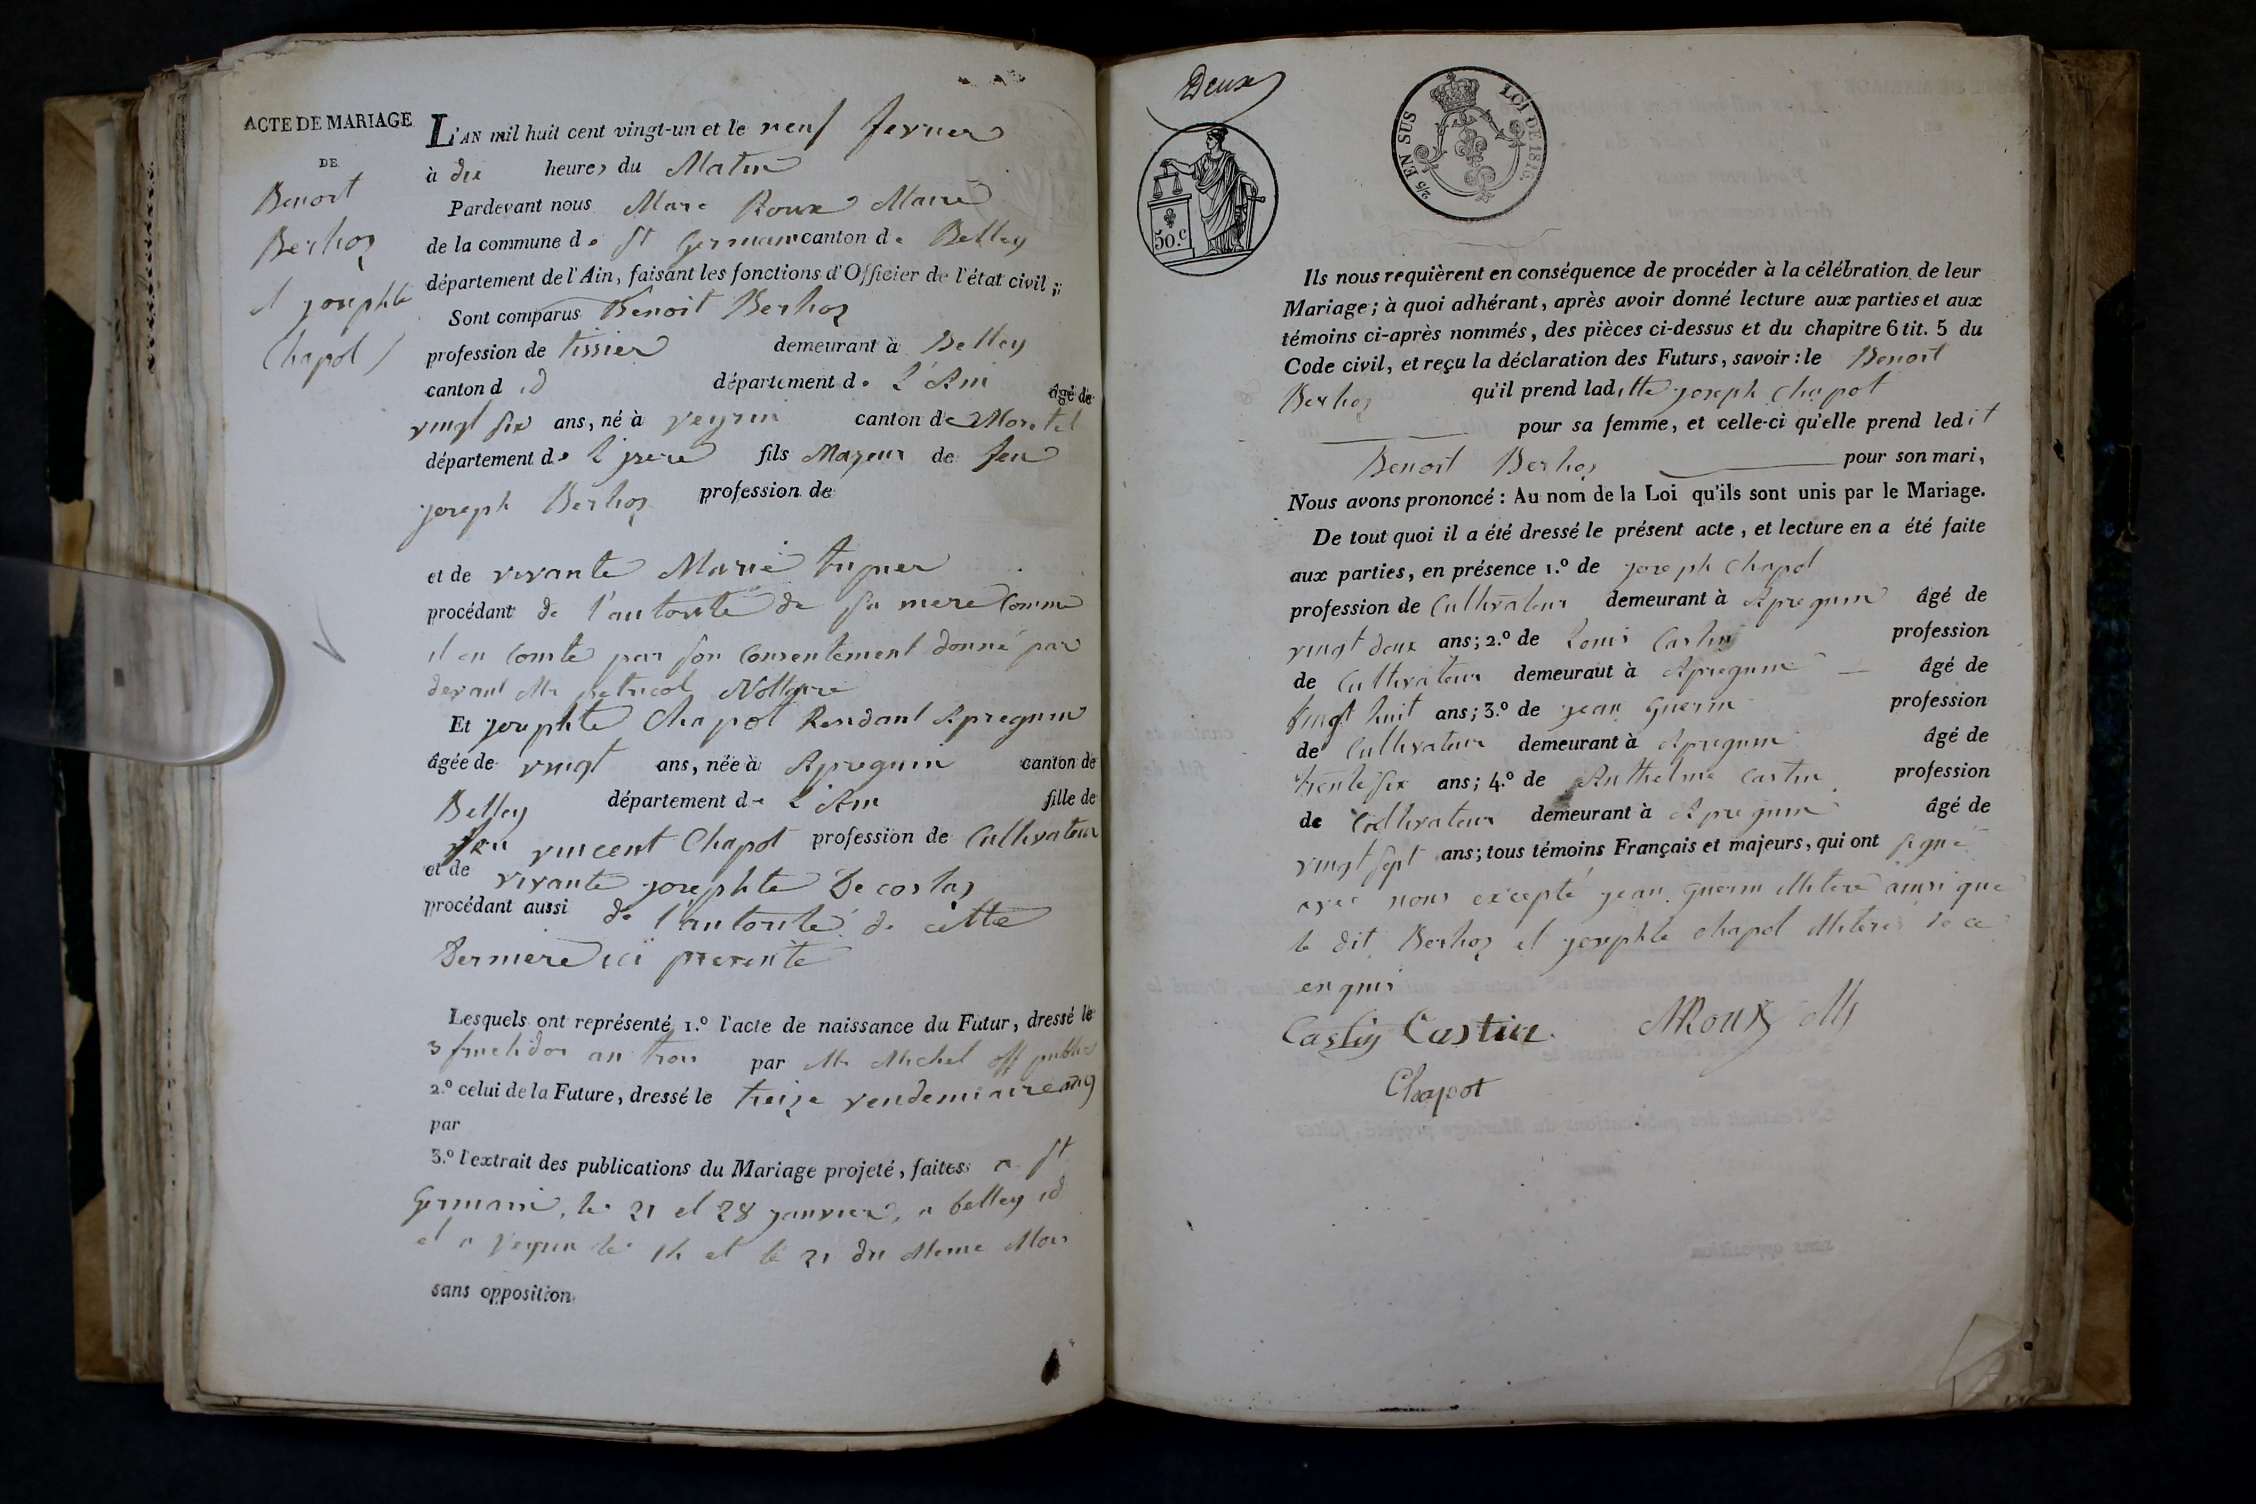 ACTE DE MARIAGE
DE
Benoit
Berhoz
et josephte
Chapot
L'AN mil huit cent vingt-un et le neuf fevrier
à dix heures du Matin
Pardevant nous Marc Roux Maire
de la commune de St Germain canton de Belley
département de l'Ain, faisant les fonctions d'Officier de l'état civil;
Sont comparus Benoit Berhoz
profession de tissier demeurant à Belley
canton d id département de L'Ain âgé de
vingt six ans, né à veyrin canton de Morestel
département de L'jsere fils Majeur de feu
joseph Berhoz profession de
et de vivante Marie
procédant de l'autorité de sa mere Comme
il en Conste par son Consentement donné par
devant Mr Nottaire
Et josephte Chapot Residant Apregnin
âgée de vingt ans, née à Apregnin canton de
Belley département de L'Ain fille de
feu vincent Chapot profession de Cultivateur
et de vivante josephte Decostaz
procédant aussi de l'autorité de cette
Derniere ici presente
Lesquels ont représenté 1.º l'acte de naissance du Futur, dressé le
3 fructidor an trois par Mr Michel off public
2.º celui de la Future, dressé le treize vendemiaire an 9
par
3.º l'extrait des publications du Mariage projeté, faites a St
Germain, le 21 et 28 janvier, a belley id
et a veyrin le 14 et le 21 du Meme Mois
sans opposition
Deux
50.c
2/5 EN SUS LOI DE 1816.
Ils nous requièrent en conséquence de procéder à la célébration de leur
Mariage; à quoi adhérant, après avoir donné lecture aux parties et aux
témoins ci-après nommés, des pièces ci-dessus et du chapitre 6 tit. 5 du
Code civil, et reçu la déclaration des Futurs, savoir: le Benoit
Berhoz qu'il prend laditte joseph Chapot
pour sa femme, et celle-ci qu'elle prend ledit
Benoit Berhoz pour son mari,
Nous avons prononcé: Au nom de la Loi qu'ils sont unis par le Mariage.
De tout quoi il a été dressé le présent acte, et lecture en a été faite
aux parties, en présence 1.º de joseph Chapot
profession de Cultivateur demeurant à Apregnin âgé de
vingt deux ans; 2.º de Louis Castin profession
de Cultivateur demeurant à Apregnin âgé de
vingt huit ans; 3.º de jean Guerin profession
de Cultivateur demeurant à Apregnin âgé de
trente six ans; 4.º de Anthelme Castin profession
de Cultivateur demeurant à Apregnin âgé de
vingt sept ans; tous témoins Français et majeurs, qui ont signé
avec nous excepté jean Guerin Illiteré ainsi que
le dit Berhoz et josephte chapot Illiteres de ce
enquis
Castin Castin MRoux M
Chapot